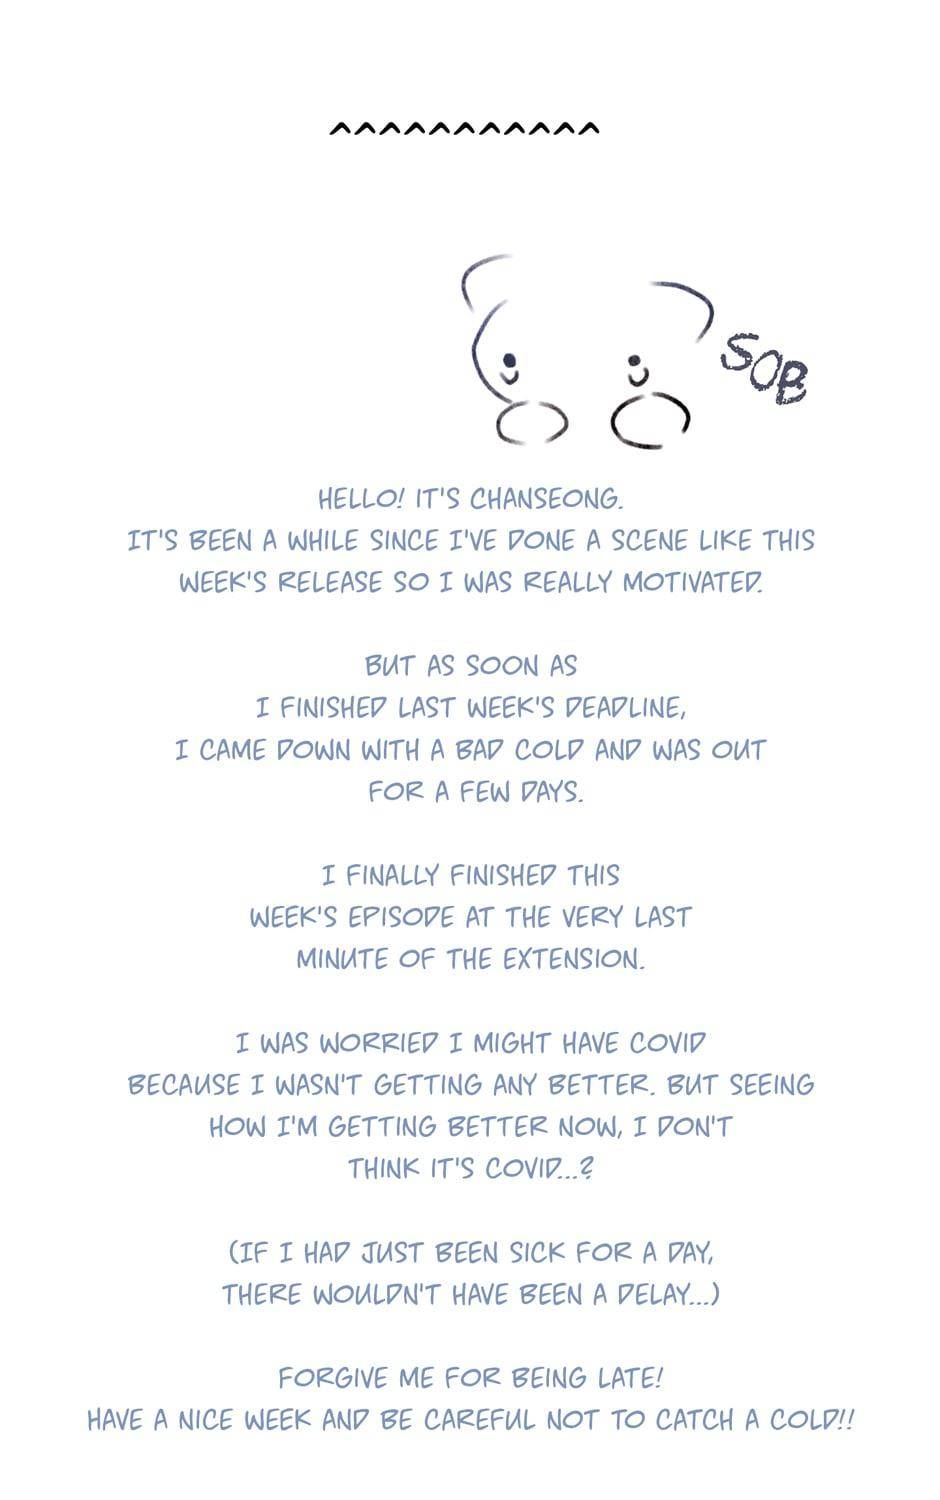 ^^^^^^^^^^^
SOB
HELLO! IT'S CHANSEONG.
IT'S BEEN A WHILE SINCE I'VE DONE A SCENE LIKE THIS
WEEK'S RELEASE SO I WAS REALLY MOTIVATED.
BUT AS SOON AS
I FINISHED LAST WEEK'S DEADLINE,
I CAME DOWN WITH A BAD COLD AND WAS OUT
FOR A FEW DAYS.
I FINALLY FINISHED THIS
WEEK'S EPISODE AT THE VERY LAST
MINUTE OF THE EXTENSION.
I WAS WORRIED I MIGHT HAVE COVID
BECAUSE I WASN'T GETTING ANY BETTER. BUT SEEING
HOW I'M GETTING BETTER NOW, I DON'T
THINK IT'S COVID...?
(IF I HAD JUST BEEN SICK FOR A DAY,
THERE WOULDN'T HAVE BEEN A DELAY...)
FORGIVE ME FOR BEING LATE!
HAVE A NICE WEEK AND BE CAREFUL NOT TO CATCH A COLD!!